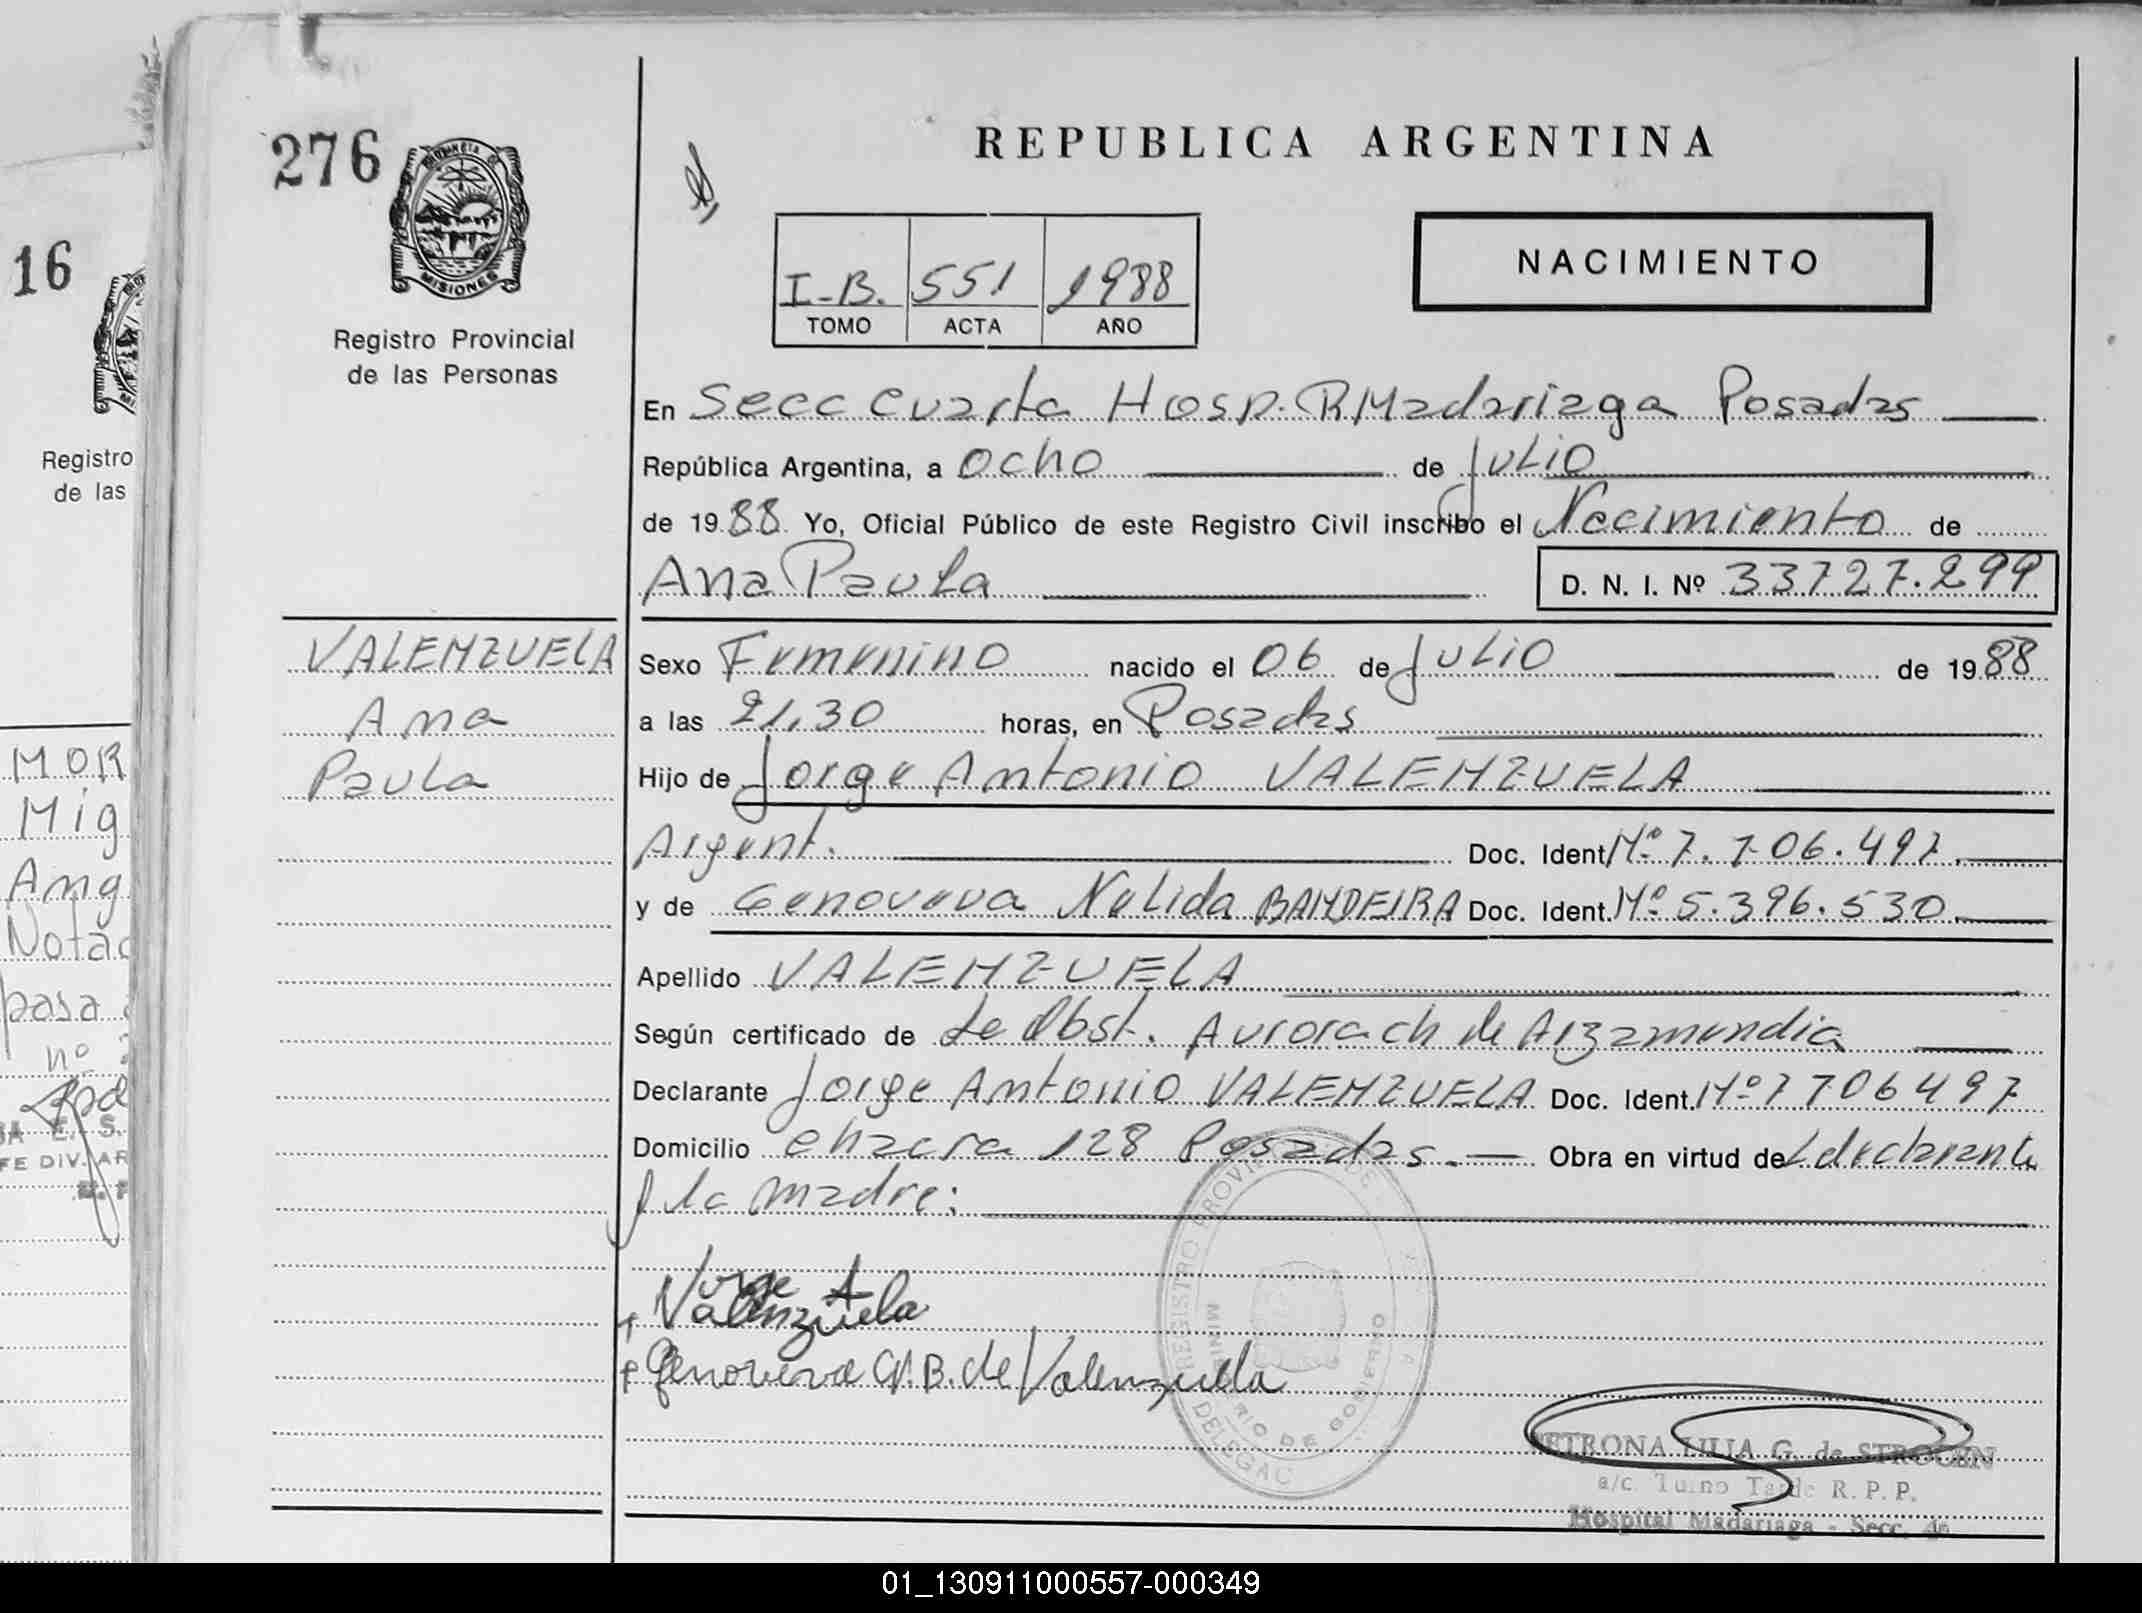 276
PROVINCIA DE
MISIONES
Registro Provincial
de las Personas
REPUBLICA ARGENTINA
NACIMIENTO
I-B. 551 1988
TOMO ACTA AÑO
En Secc Cuarta Hosp. R Madariaga Posadas
República Argentina, a ocho de Julio
de 1988 Yo, Oficial Público de este Registro Civil inscribo el Nacimiento de
Ana Paula D. N. I. Nº 33727.299
VALENZUELA
Ana
Paula
Sexo Femenino nacido el 06 de Julio de 1988
a las 21,30 horas, en Posadas
Hijo de Jorge Antonio VALENZUELA
Argent. Doc. Ident Nº 7.706.497
y de Genoveva Nelida BANDEIRA Doc. Ident. Nº 5.396.530
Apellido VALENZUELA
Según certificado de de Obst. Aurora ch de Arzamendia
Declarante Jorge Antonio VALENZUELA Doc. Ident. Nº 7706497
Domicilio chacra 128 Posadas. Obra en virtud de L declarante
y la madre:
Jorge A
Valenzuela
Genoveva N. B. de Valenzuela
REGISTRO PROVINCIAL DE
MINISTERIO DE GOBIERNO
DELEGAC
PETRONA LILIA G. de STROCEN
a/c. Turno Tarde R. P. P.
Hospital Madariaga - Secc. 4a
16
Registro
de las
MOR
Mig
Ang
Notac
pasa
nº
E. S.
FE DIV. AR
01_130911000557-000349